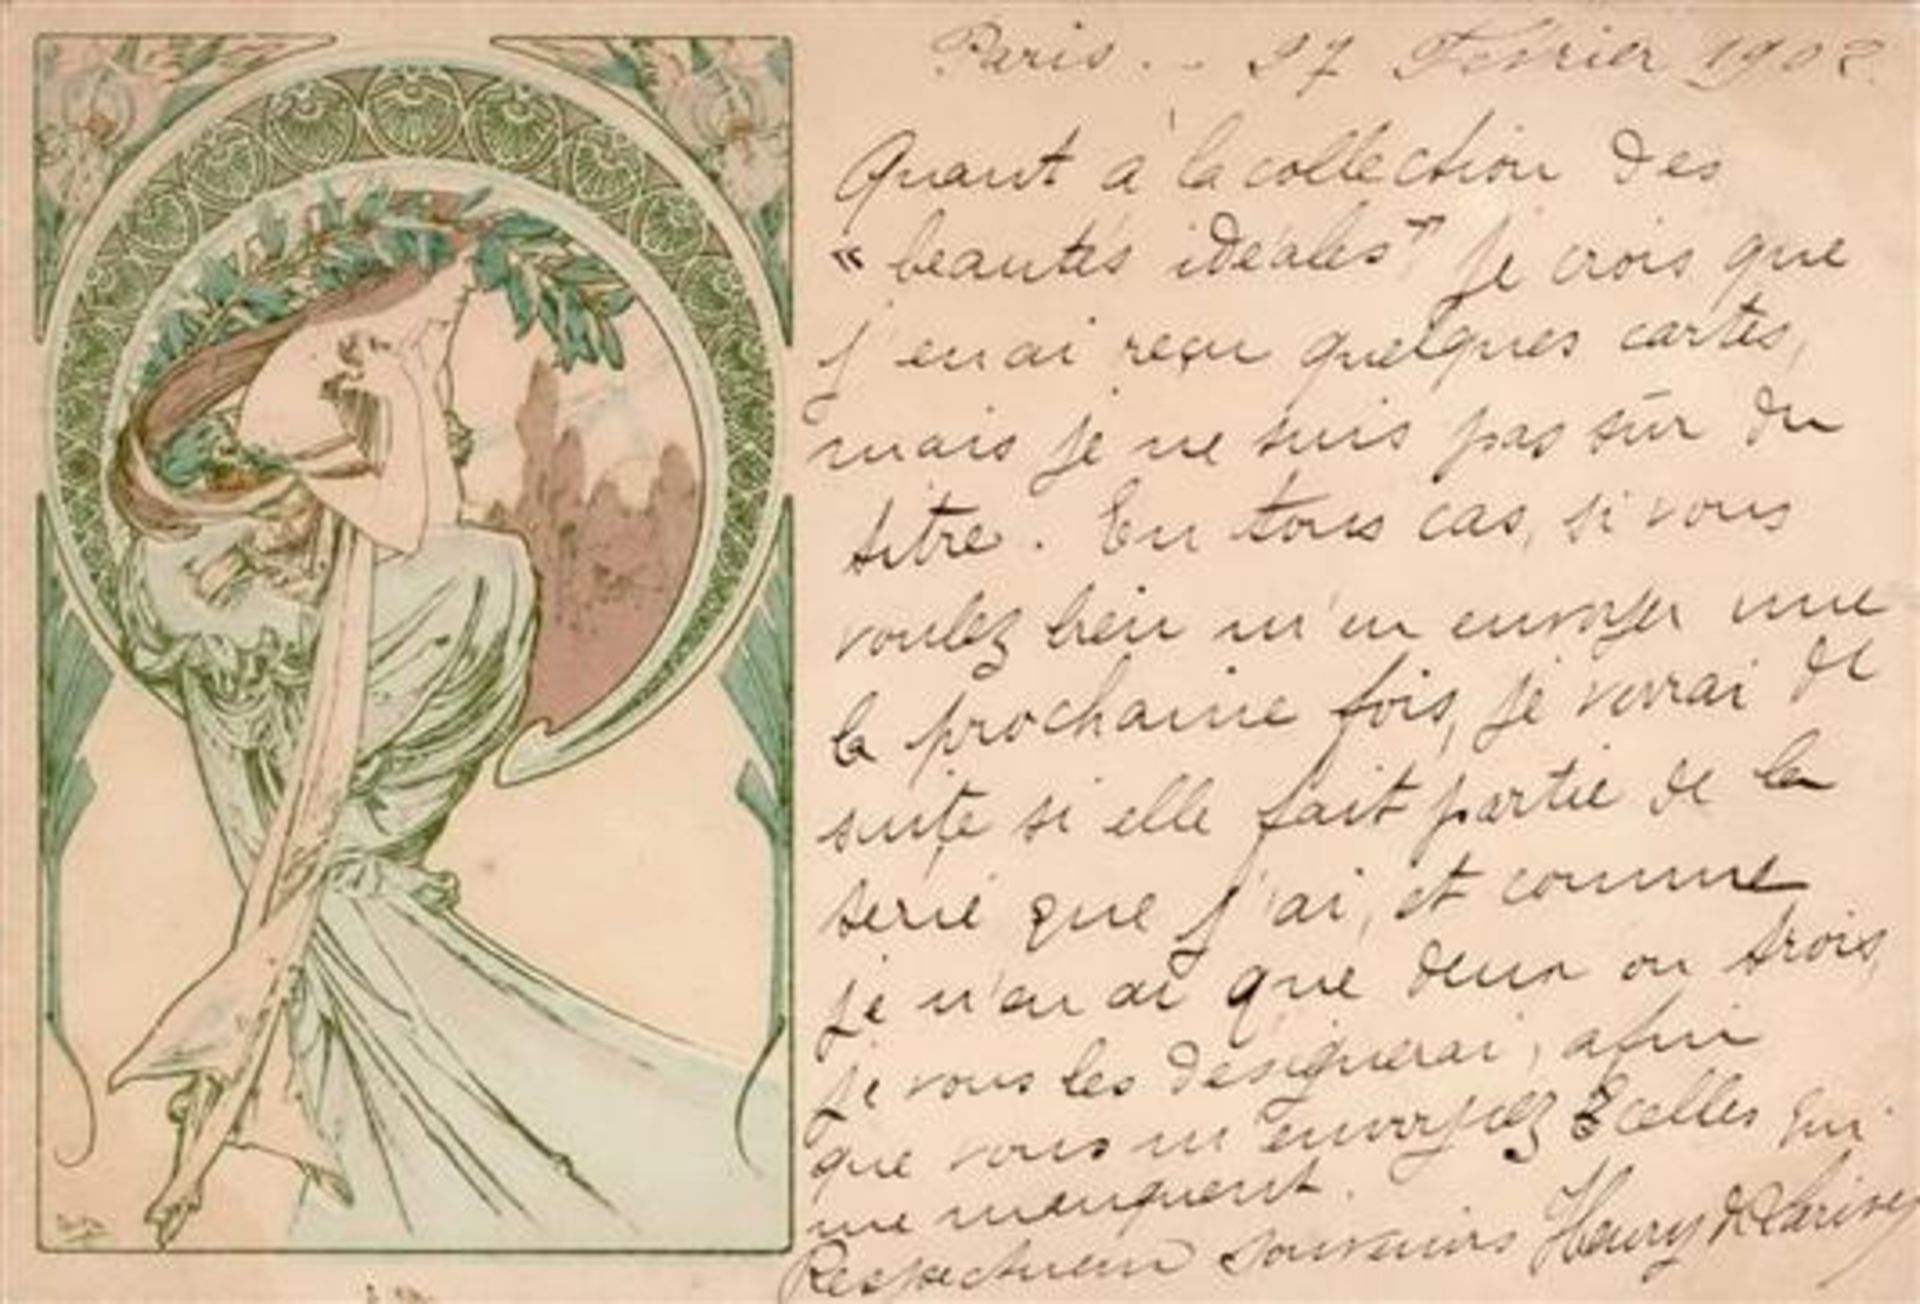 Paris. - 27 Février 1902.
Quant à la collection des
"beautés idéales" je crois que
j'en ai reçu quelques cartes,
mais je ne suis pas sûr du
titre. En tous cas, si vous
voulez bien m'en envoyer une
la prochaine fois, je verrai de
suite si elle fait partie de la
serie que j'ai, et comme
je n'en ai que deux ou trois,
je vous les designerai, afin
que vous m'envoyiez celles qui
me manquent.
Respectueux souvenirs Henry de